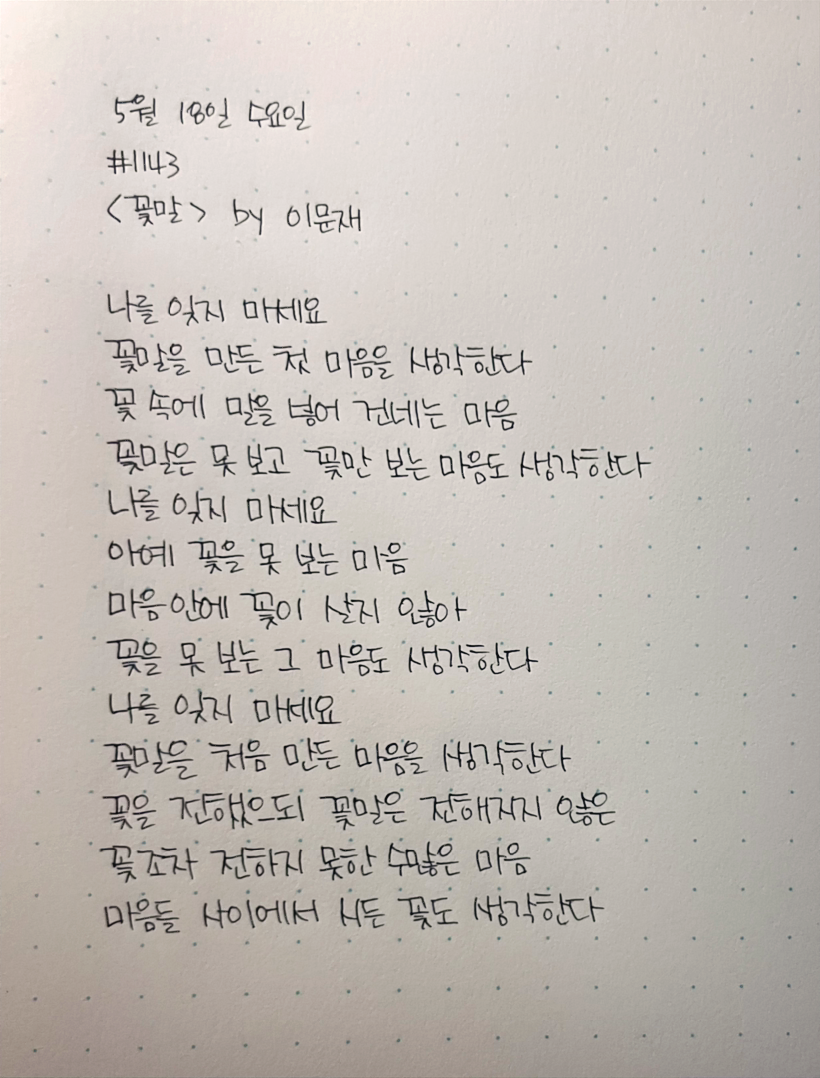 5월 18일 수요일
#1143
<꽃말> by 이문재
나를 잊지 마세요
꽃말을 만든 첫 마음을 생각한다
꽃 속에 말을 넣어 건네는 마음
꽃말은 못 보고 꽃만 보는 마음도 생각한다
나를 잊지 마세요
아예 꽃을 못 보는 마음
마음 안에 꽃이 살지 않아
꽃을 못 보는 그 마음도 생각한다
나를 잊지 마세요
꽃말을 처음 만든 마음을 생각한다
꽃을 전했으되 꽃말은 전해지지 않은
꽃조차 전하지 못한 수많은 마음
마음들 사이에서 시든 꽃도 생각한다